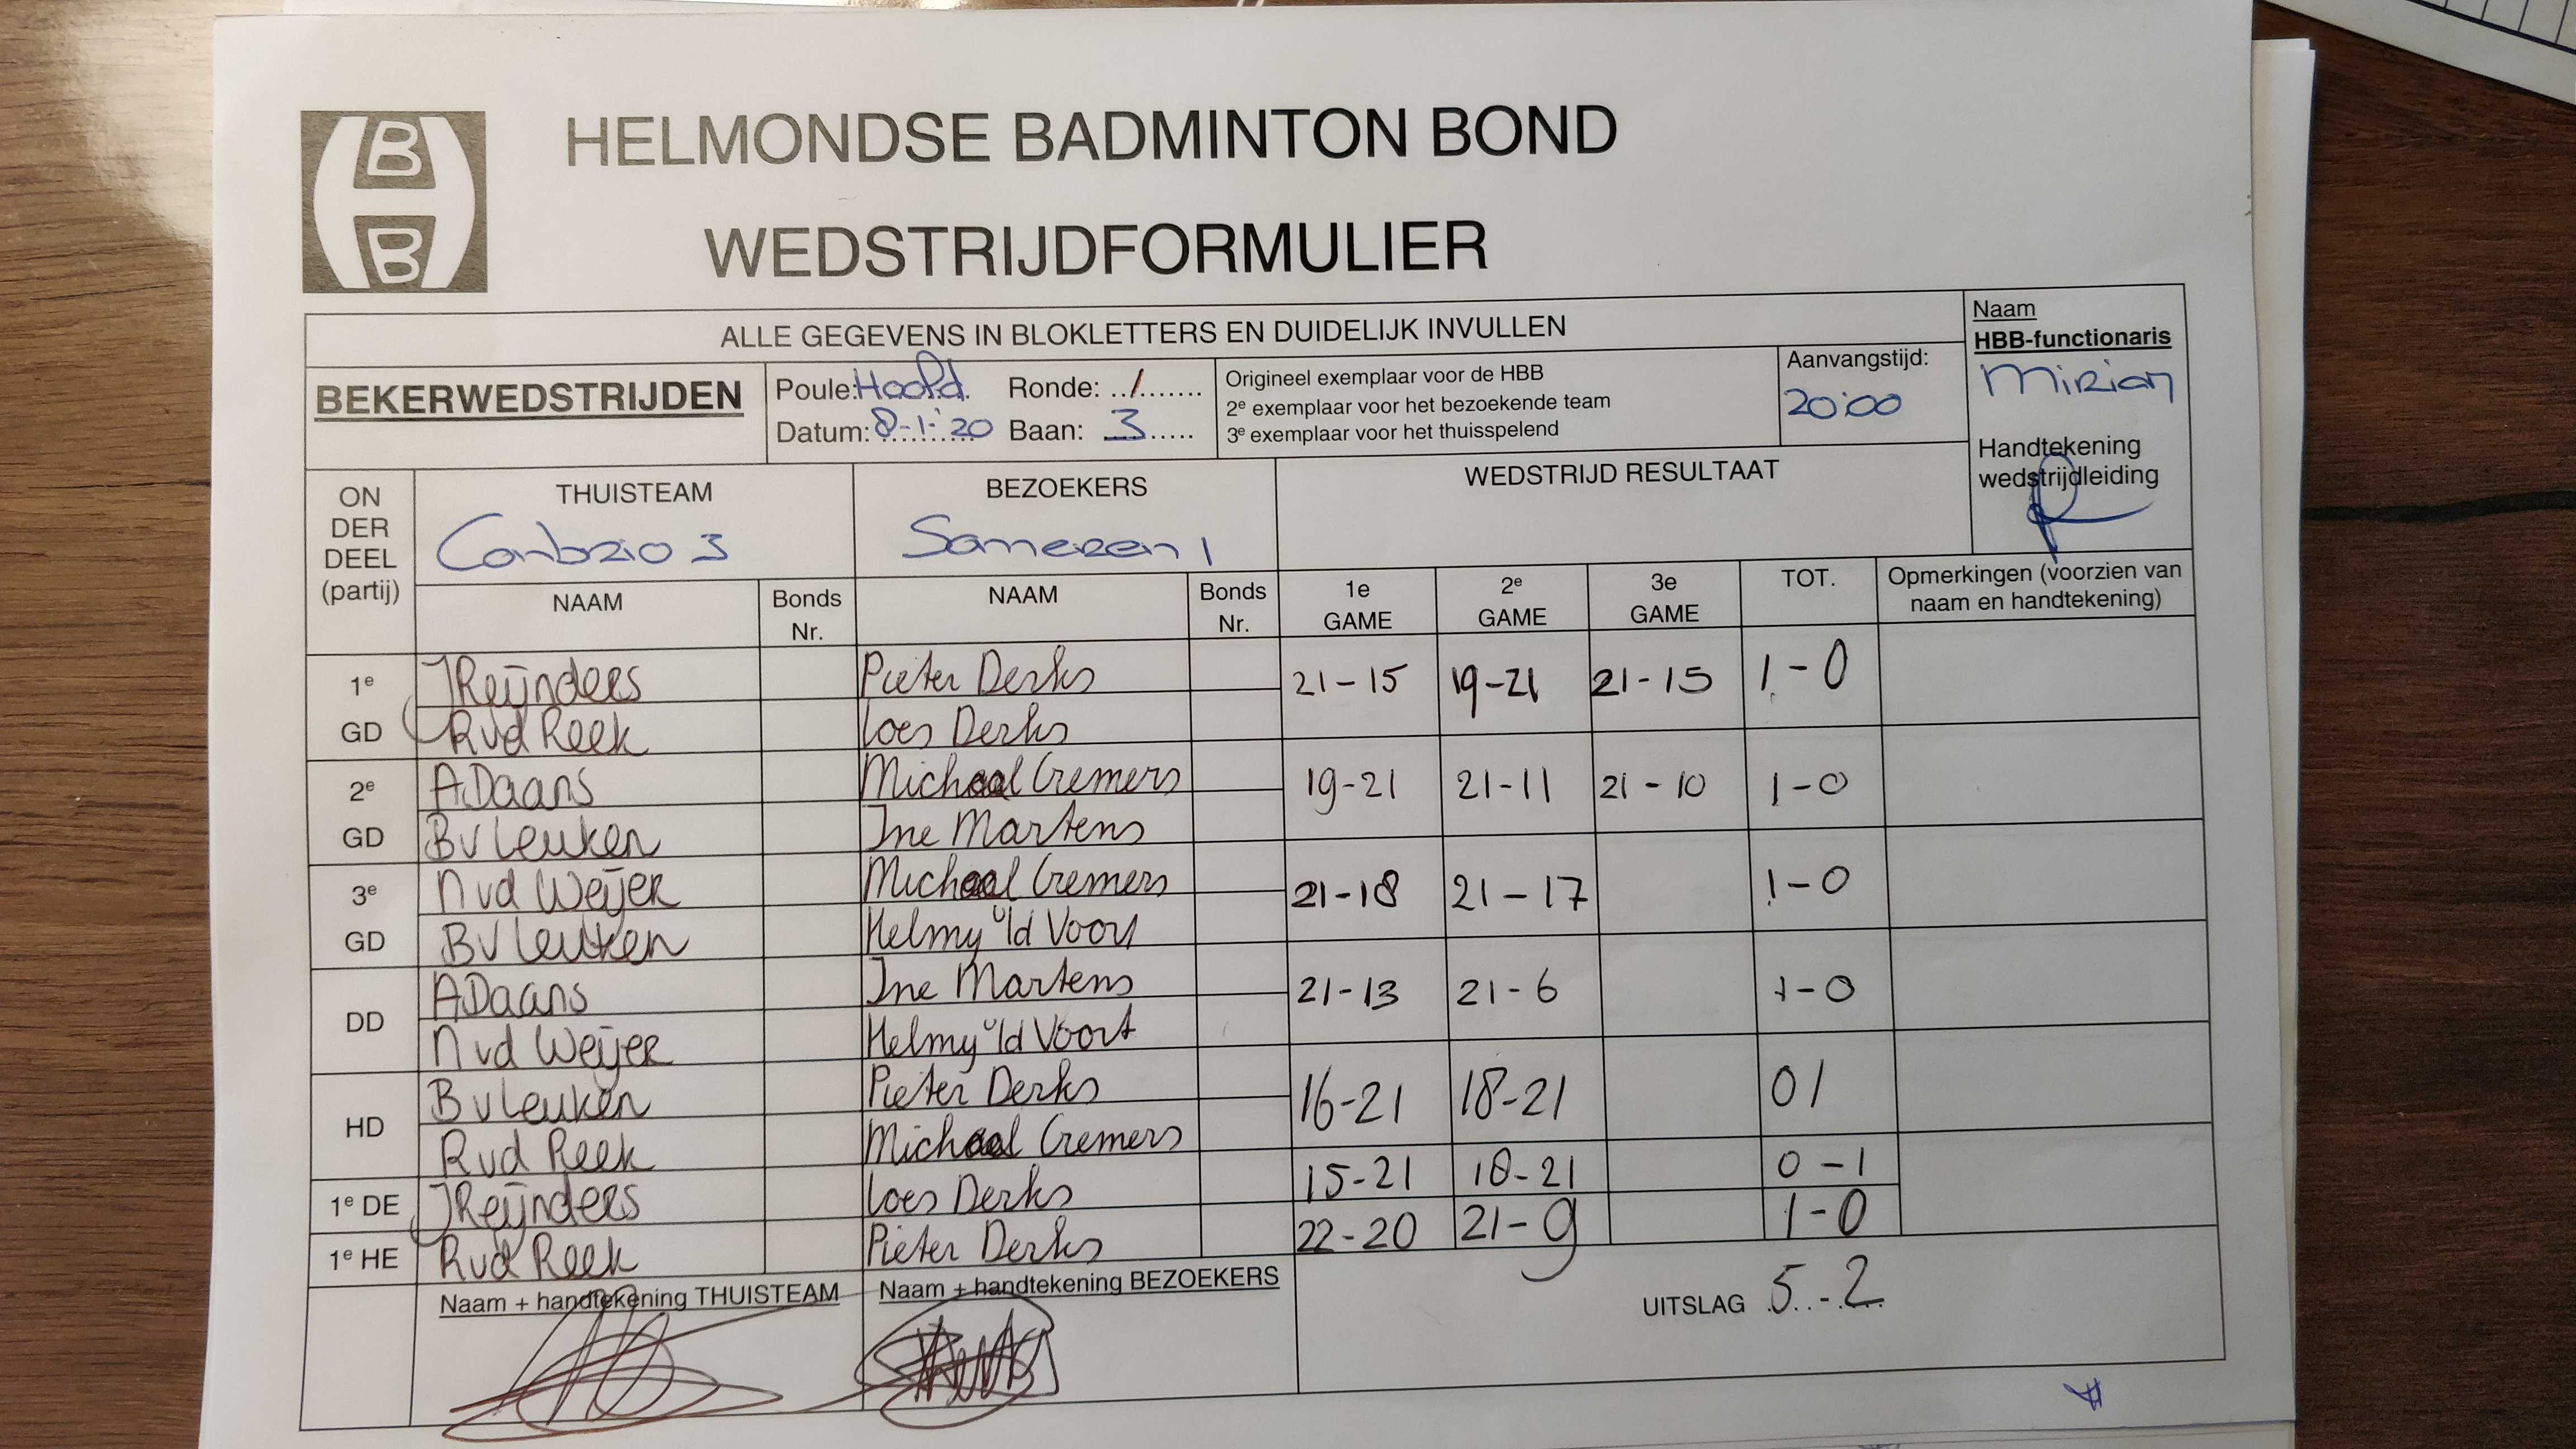 B
B
HELMONDSE BADMINTON BOND
WEDSTRIJDFORMULIER
ALLE GEGEVENS IN BLOKLETTERS EN DUIDELIJK INVULLEN
Naam
HBB-functionaris
Mirian
Handtekening
wedstrijdleiding
BEKERWEDSTRIJDEN
Poule: Hoofd. Ronde: ../.......
Datum: 8-1-'20 Baan: 3.....
Origineel exemplaar voor de HBB
2e exemplaar voor het bezoekende team
3e exemplaar voor het thuisspelend
Aanvangstijd:
20:00
ON
DER
DEEL
(partij)
THUISTEAM
Conbrio 3
BEZOEKERS
Someren 1
WEDSTRIJD RESULTAAT
NAAM Bonds Nr. NAAM Bonds Nr. 1e GAME 2e GAME 3e GAME TOT. Opmerkingen (voorzien van naam en handtekening)
1e JReijnders Pieter Derks 21-15 19-21 21-15 1-0
GD Rvd Reek Loes Derks
2e A.Daans Michael Cremers 19-21 21-11 21-10 1-0
GD Bv Leuken Ine Martens
3e N vd Weijer Michael Cremers 21-18 21-17 1-0
GD Bv Leuken Helmy v/d Voort
DD A.Daans Ine Martens 21-13 21-6 1-0
N vd Weijer Helmy v/d Voort
HD B v Leuken Pieter Derks 16-21 18-21 0 1
Rvd Reek Michael Cremers
1e DE JReijnders Loes Derks 15-21 18-21 0-1
1e HE Rvd Reek Pieter Derks 22-20 21-9 1-0
Naam + handtekening THUISTEAM
Naam + handtekening BEZOEKERS
UITSLAG 5-2